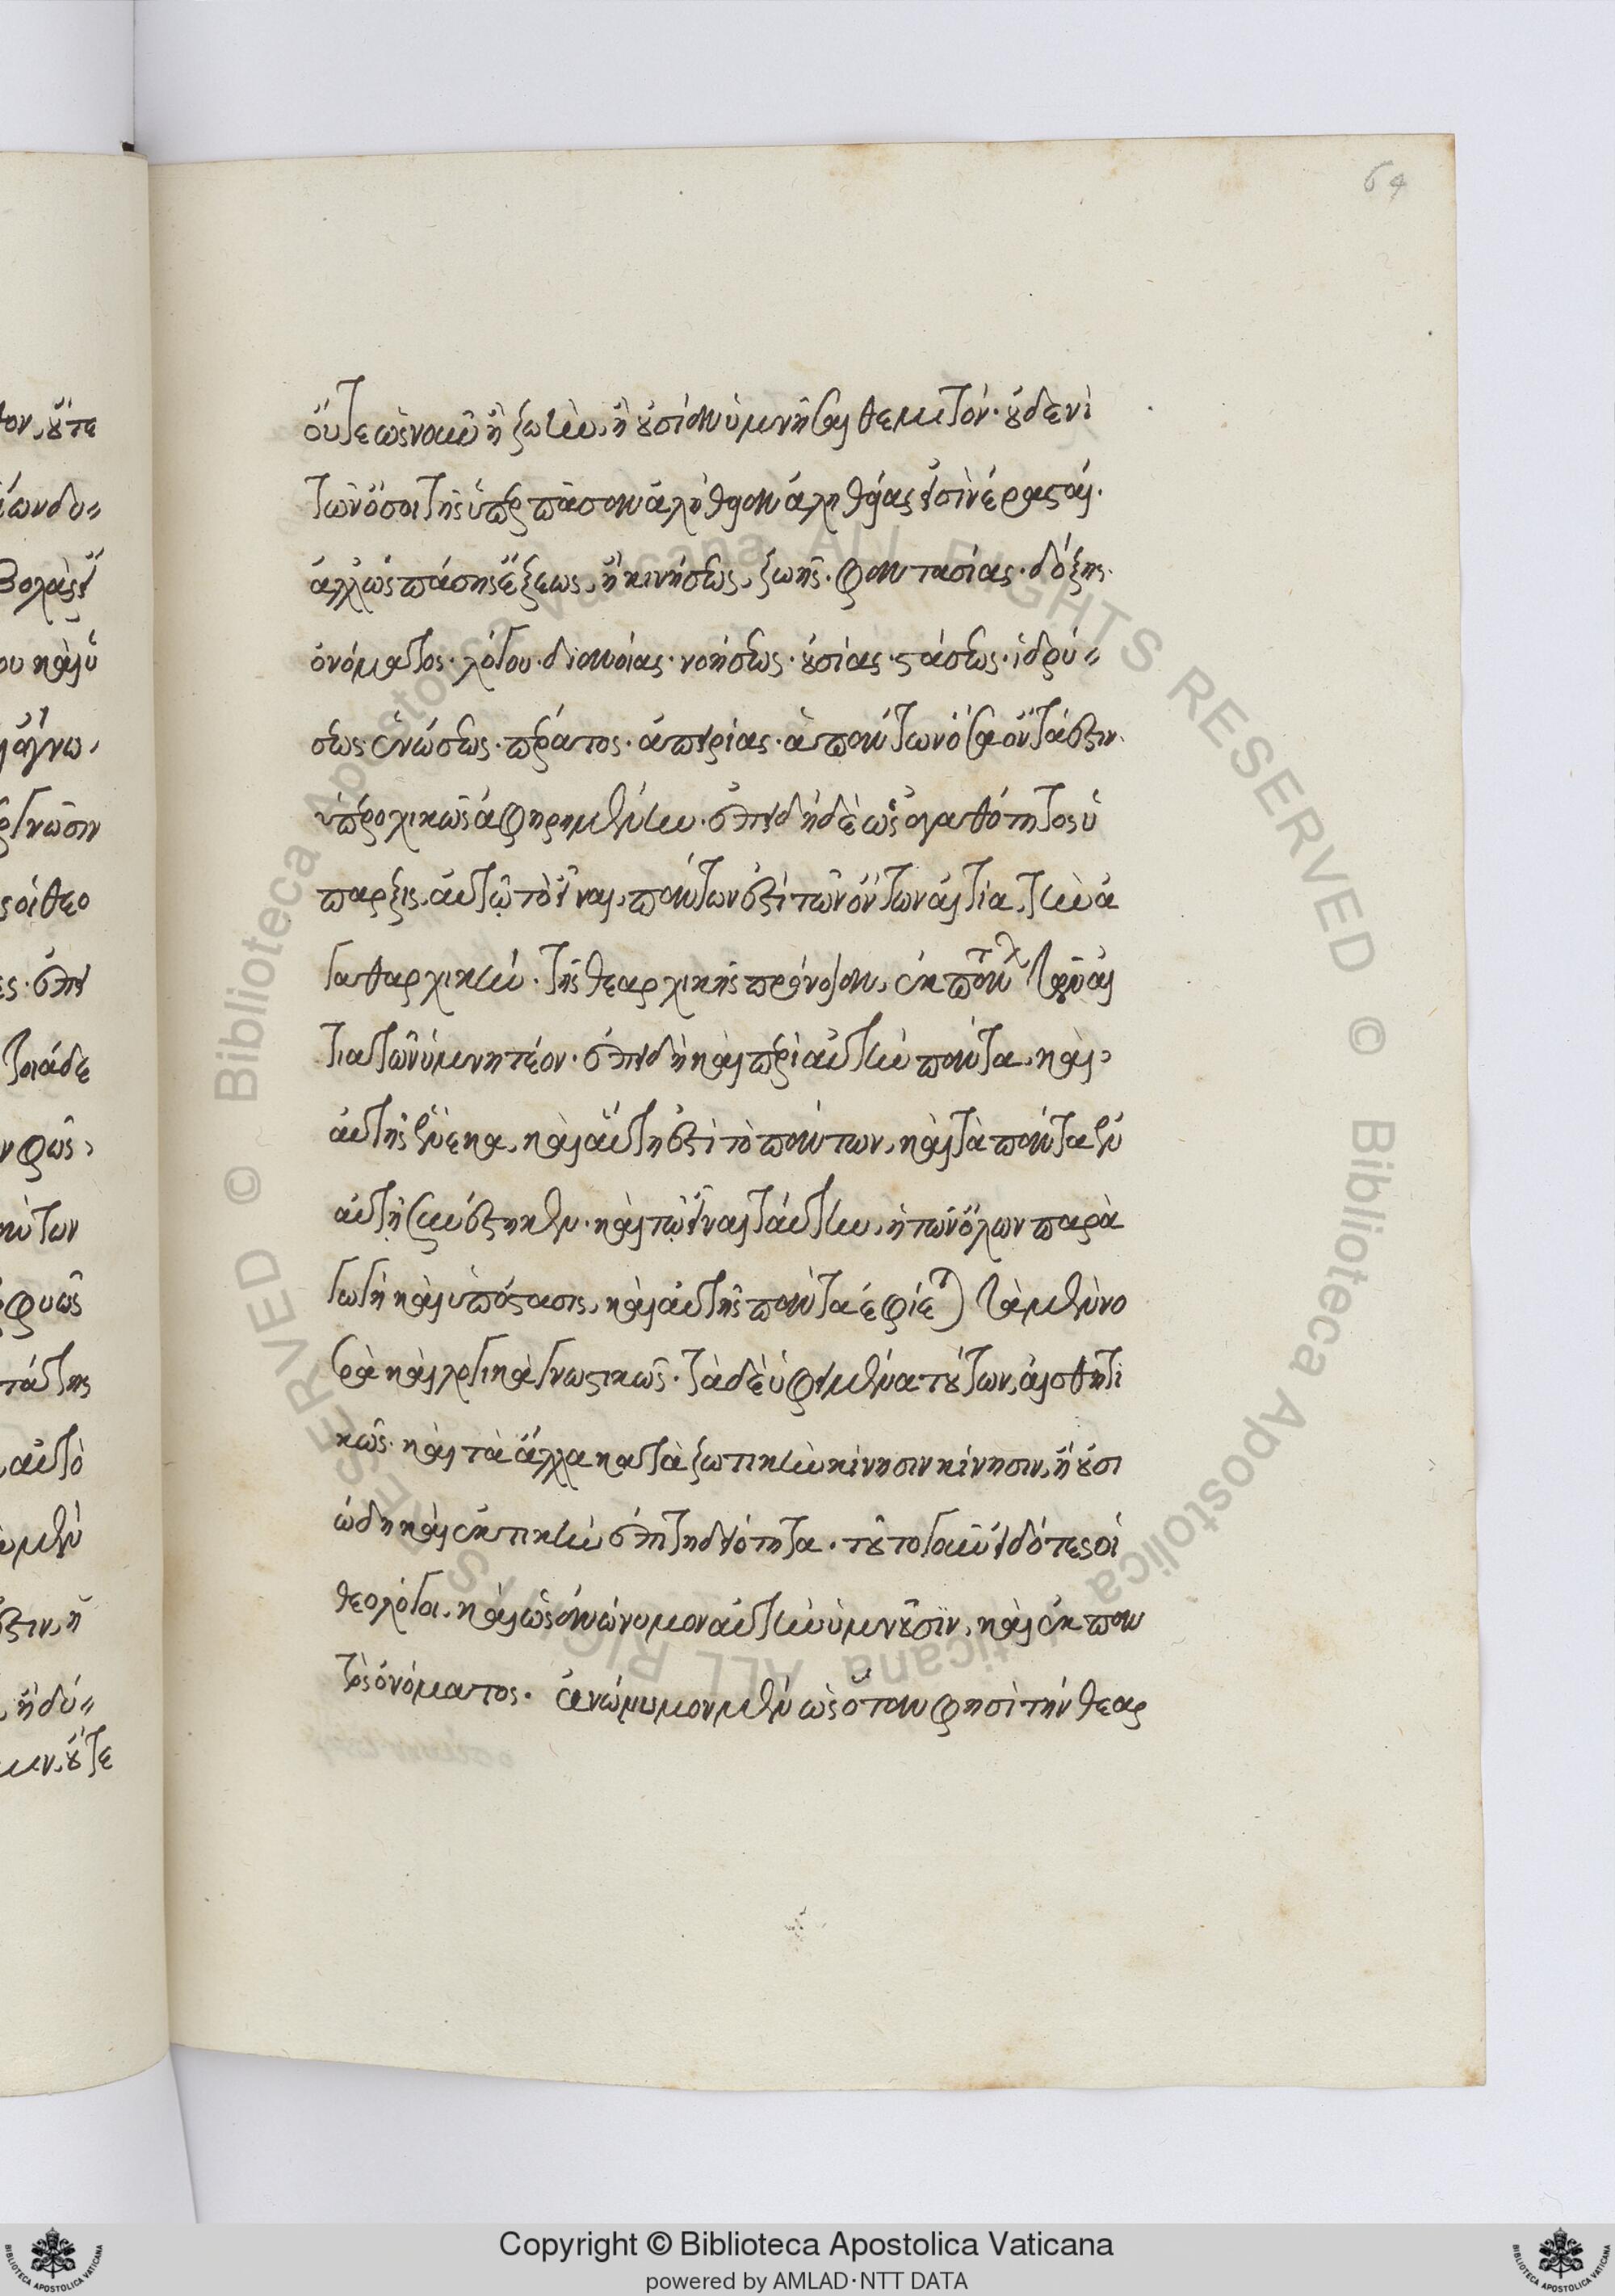 64
οὔτε ὡς νοῦν ἢ ζωὴν, ἢ οὐσίαν ὑμνῆσαι θεμιτόν· οὐδενὶ
τῶν ὅσοι τῆς ὑπὲρ πᾶσαν ἀλήθειαν ἀληθείας εἰσὶν ἐρασταί.
ἀλλ' ὡς πάσης ἕξεως, ἢ κινήσεως, ζωῆς· φαντασίας· δόξης·
ὀνόματος· λόγου· διανοίας· νοήσεως· οὐσίας· στάσεως· ἱδρύ=
σεως ἑνώσεως· πέρατος· ἀπειρίας· ἁπάντων ὅσα ὄντα ἐστιν.
ὑπεροχικῶς ἀφηρημένην· ἐπειδὴ δὲ ὡς ἀγαθότητος ὕ
παρξις, αὐτῷ τὸ εἶναι, πάντων ἐστὶ τῶν ὄντων αἰτία, τὴν ἀ
γαθαρχικὴν· τῆς θεαρχικῆς πρόνοιαν, ἐκ πάντων τῶν αἰ
τιατῶν ὑμνητέον· ἐπειδὴ καὶ περὶ αὐτὴν πάντα, καὶ
αὐτῆς ἕνεκα, καὶ αὕτη ἐστὶ τὸ πάντων, καὶ τὰ πάντα ἐν
αὐτῇ συνέστηκεν· καὶ τῷ εἶναι ταύτην, ἡ τῶν ὅλων παρα
γωγὴ καὶ ὑπόστασις, καὶ αὐτῆς πάντα ἐφίεται τὰ μὲν νο
ερὰ καὶ λογικὰ γνωστικῶς· τὰ δὲ ὑφειμένα τούτων, αἰσθητι
κῶς· καὶ τὰ ἄλλα κατὰ ζωτικὴν κίνησιν κίνησιν, ἢ οὐσι
ώδη καὶ ἑκτικὴν ἐπιτηδειότητα· τοῦτο γοῦν εἰδότες οἱ
θεολόγοι, καὶ ὡς ἀνώνυμον αὐτὴν ὑμνοῦσιν, καὶ ἐκ παν
τὸς ὀνόματος· ἀνώνυμον μὲν ὡς ὅταν φησὶ τὴν θεαρ
© Biblioteca Apostolica Vaticana ALL RIGHTS RESERVED
© Biblioteca Apostolica Vaticana ALL RIGHTS RESERVED
Copyright © Biblioteca Apostolica Vaticana
powered by AMLAD·NTT DATA